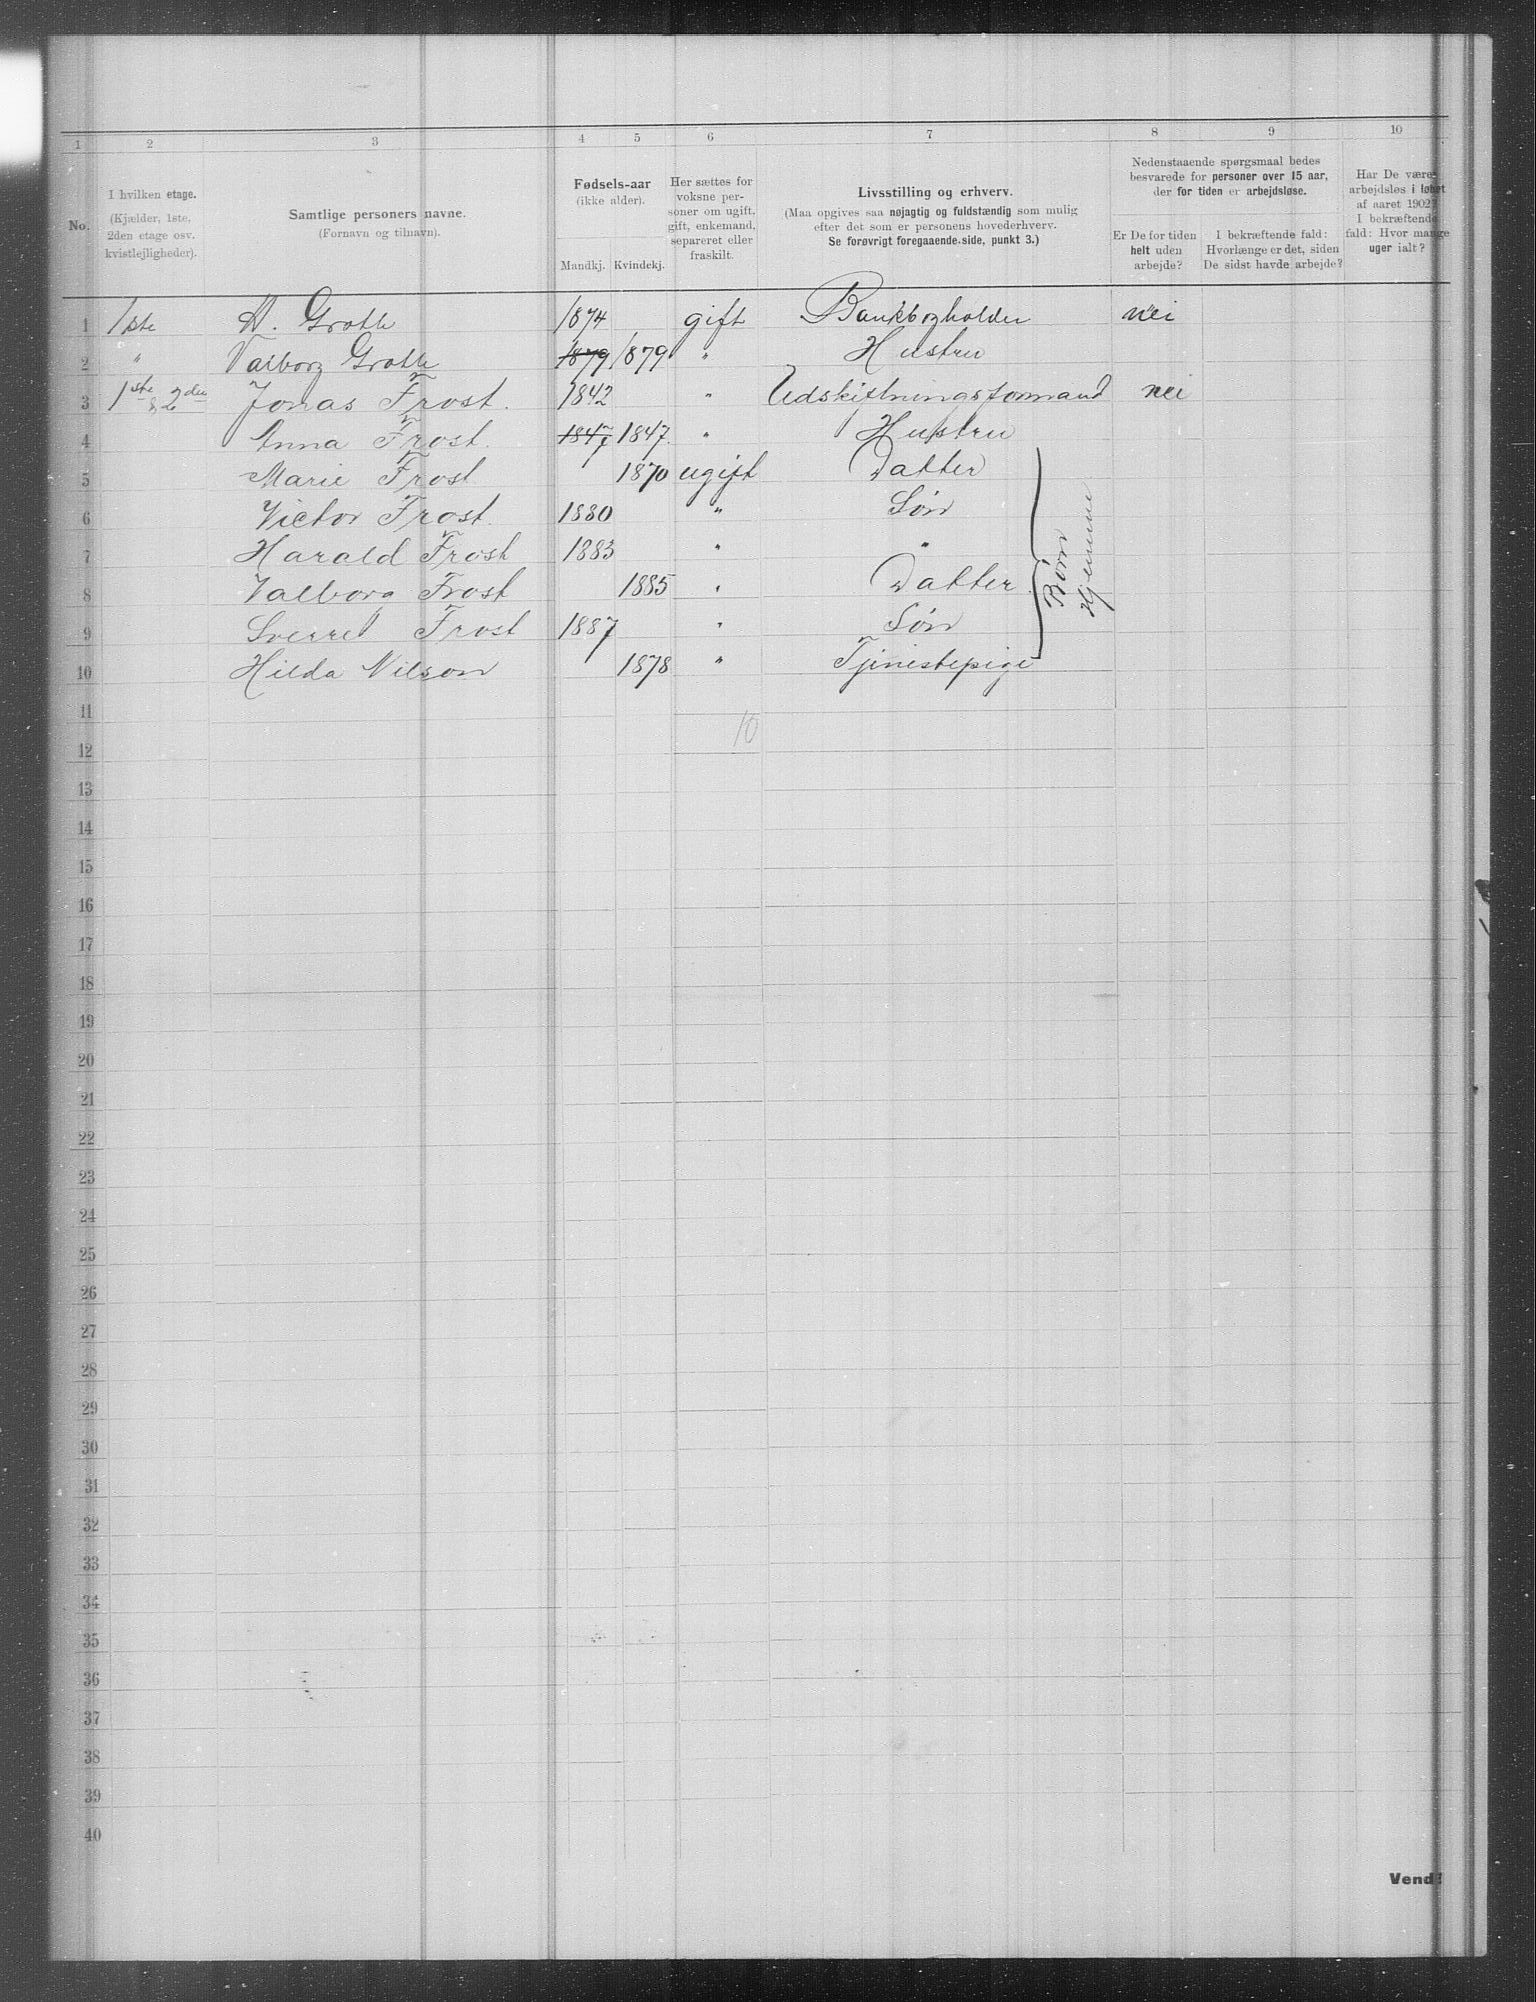 1 2 3 4 5 6 7 8 9 10
No.
I hvilken etage.
(Kjælder, 1ste,
2den etage osv.
kvistlejligheder).
Samtlige personers navne.
(Fornavn og tilnavn).
Fødsels-aar
(ikke alder).
Mandkj. Kvindekj.
Her sættes for
voksne per-
soner om ugift,
gift, enkemand,
separeret eller
fraskilt.
Livsstilling og erhverv.
(Maa opgives saa nøjagtig og fuldstændig som mulig
efter det som er personens hovederhverv.
Se forøvrigt foregaaende side, punkt 3.)
Nedenstaaende spørgsmaal bedes
besvarede for personer over 15 aar,
der for tiden er arbejdsløse.
Er De for tiden
helt uden
arbejde?
I bekræftende fald:
Hvorlænge er det, siden
De sidst havde arbejde?
Har De været
arbejdsløs i løbet
af aaret 1902?
I bekræftende
fald: Hvor mange
uger ialt?
1 1ste A. Groth 1874 gift Bankbogholder nei
2 " Valborg Groth 1879 1879 " Hustru
3 1ste & 2den Jonas Frost. 1842 " Udskiftningsformand nei
4 Anna Frost. 1847 1847. " Hustru
5 Marie Frost 1870 ugift Datter
6 Victor Frost. 1880 " Søn
7 Harald Frost 1883 " "
8 Valborg Frost 1885 " Datter.
9 Sverre Frost 1887 " Søn
Børn
Hjemme
10 Hilda Nilson 1878 " Tjenistepige
11
10
12
13
14
15
16
17
18
19
20
21
22
23
24
25
26
27
28
29
30
31
32
33
34
35
36
37
38
39
40
Vend!